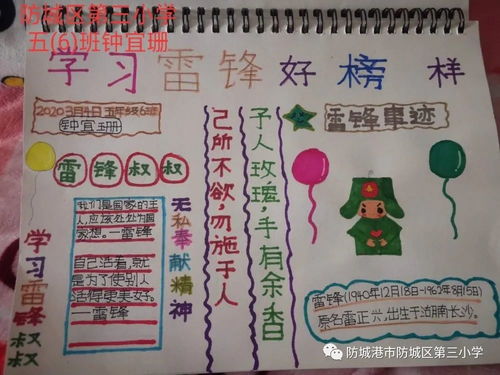 防城区第三小学
五(6)班钟宜珊
学习雷锋好榜样
2020年3月4日 五年级6班
钟宜珊
雷锋叔叔
学习雷锋叔叔
我们是国家的主
人,应该处处为国
家想。—雷锋
自己活着,就
是为了使别人
活得更美好。
—雷锋
无私奉献精神
己所不欲,勿施于人
予人玫瑰,手有余香
雷锋事迹
雷锋(1940年12月18日-1962年8月15日)
原名雷正兴,出生于湖南长沙。
防城港市防城区第三小学